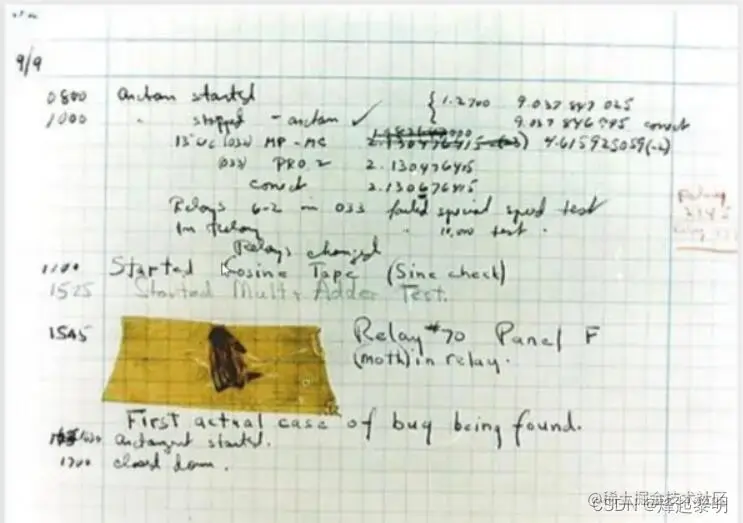 9/9
0800 antan started
1000 " stopped - antan ✓ { 1.2700 9.037 847 025
9.037 846 995 correct
13"uc (032) MP - MC 2.130476415 4.615925059(-2)
(033) PRO 2 2.130476415
correct 2.130676415
Relays 6-2 in 033 failed special speed test
In Relay " 10,000 test .
Relays changed
1100 Started Cosine Tape (Sine check)
1525 Started Mult + Adder Test.
1545 Relay #70 Panel F
(moth) in relay.
First actual case of bug being found.
1630 antangent started.
1700 closed down.
Relay
2145
@稀土掘金技术社区
CSDN @烽起黎明